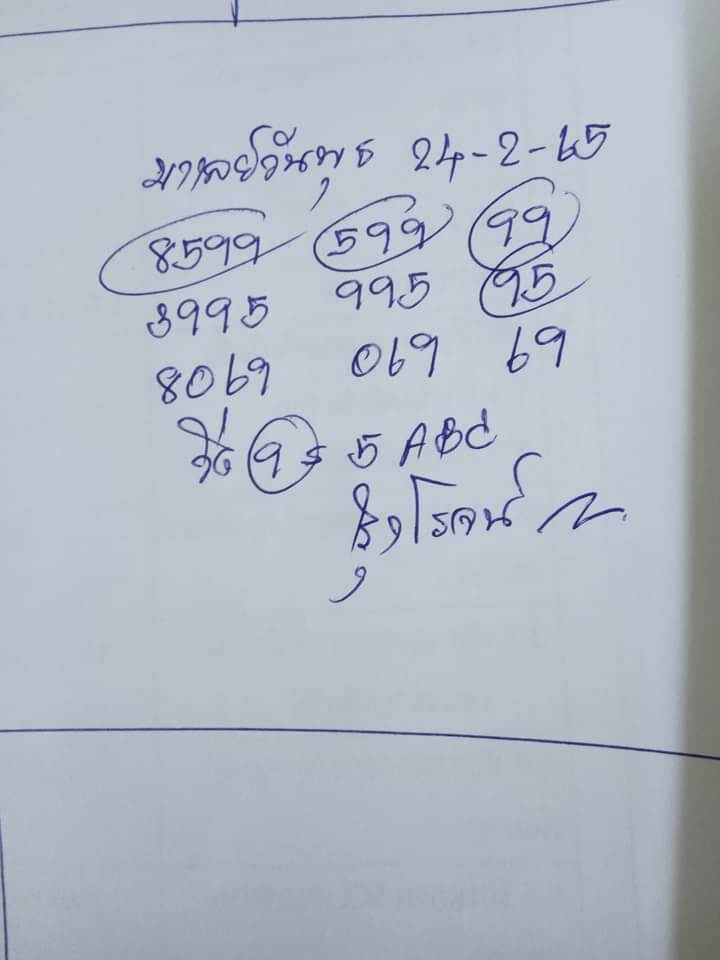 มาเลย์วันพุธ 24-2-65
8599 599 99
3995 995 95
8069 069 69
วิ่ง 9 5 ABC
โรจน์